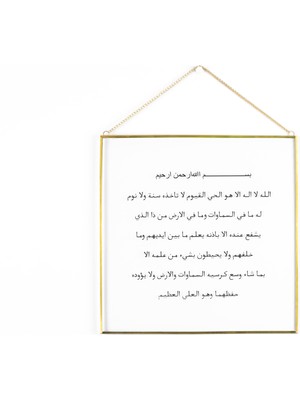 بســـــــــم الله ارحمن ارحيم
الله لا اله الا هو الحي القيوم لا تاخذه سنة ولا نوم
له ما في السماوات وما في الارض من ذا الذي
يشفع عنده الا باذنه يعلم ما بين ايديهم وما
خلفهم ولا يحيطون بشيء من علمه الا
بما شاء وسع كرسيه السماوات والارض ولا يؤوده
حفظهما وهو العلي العظيم